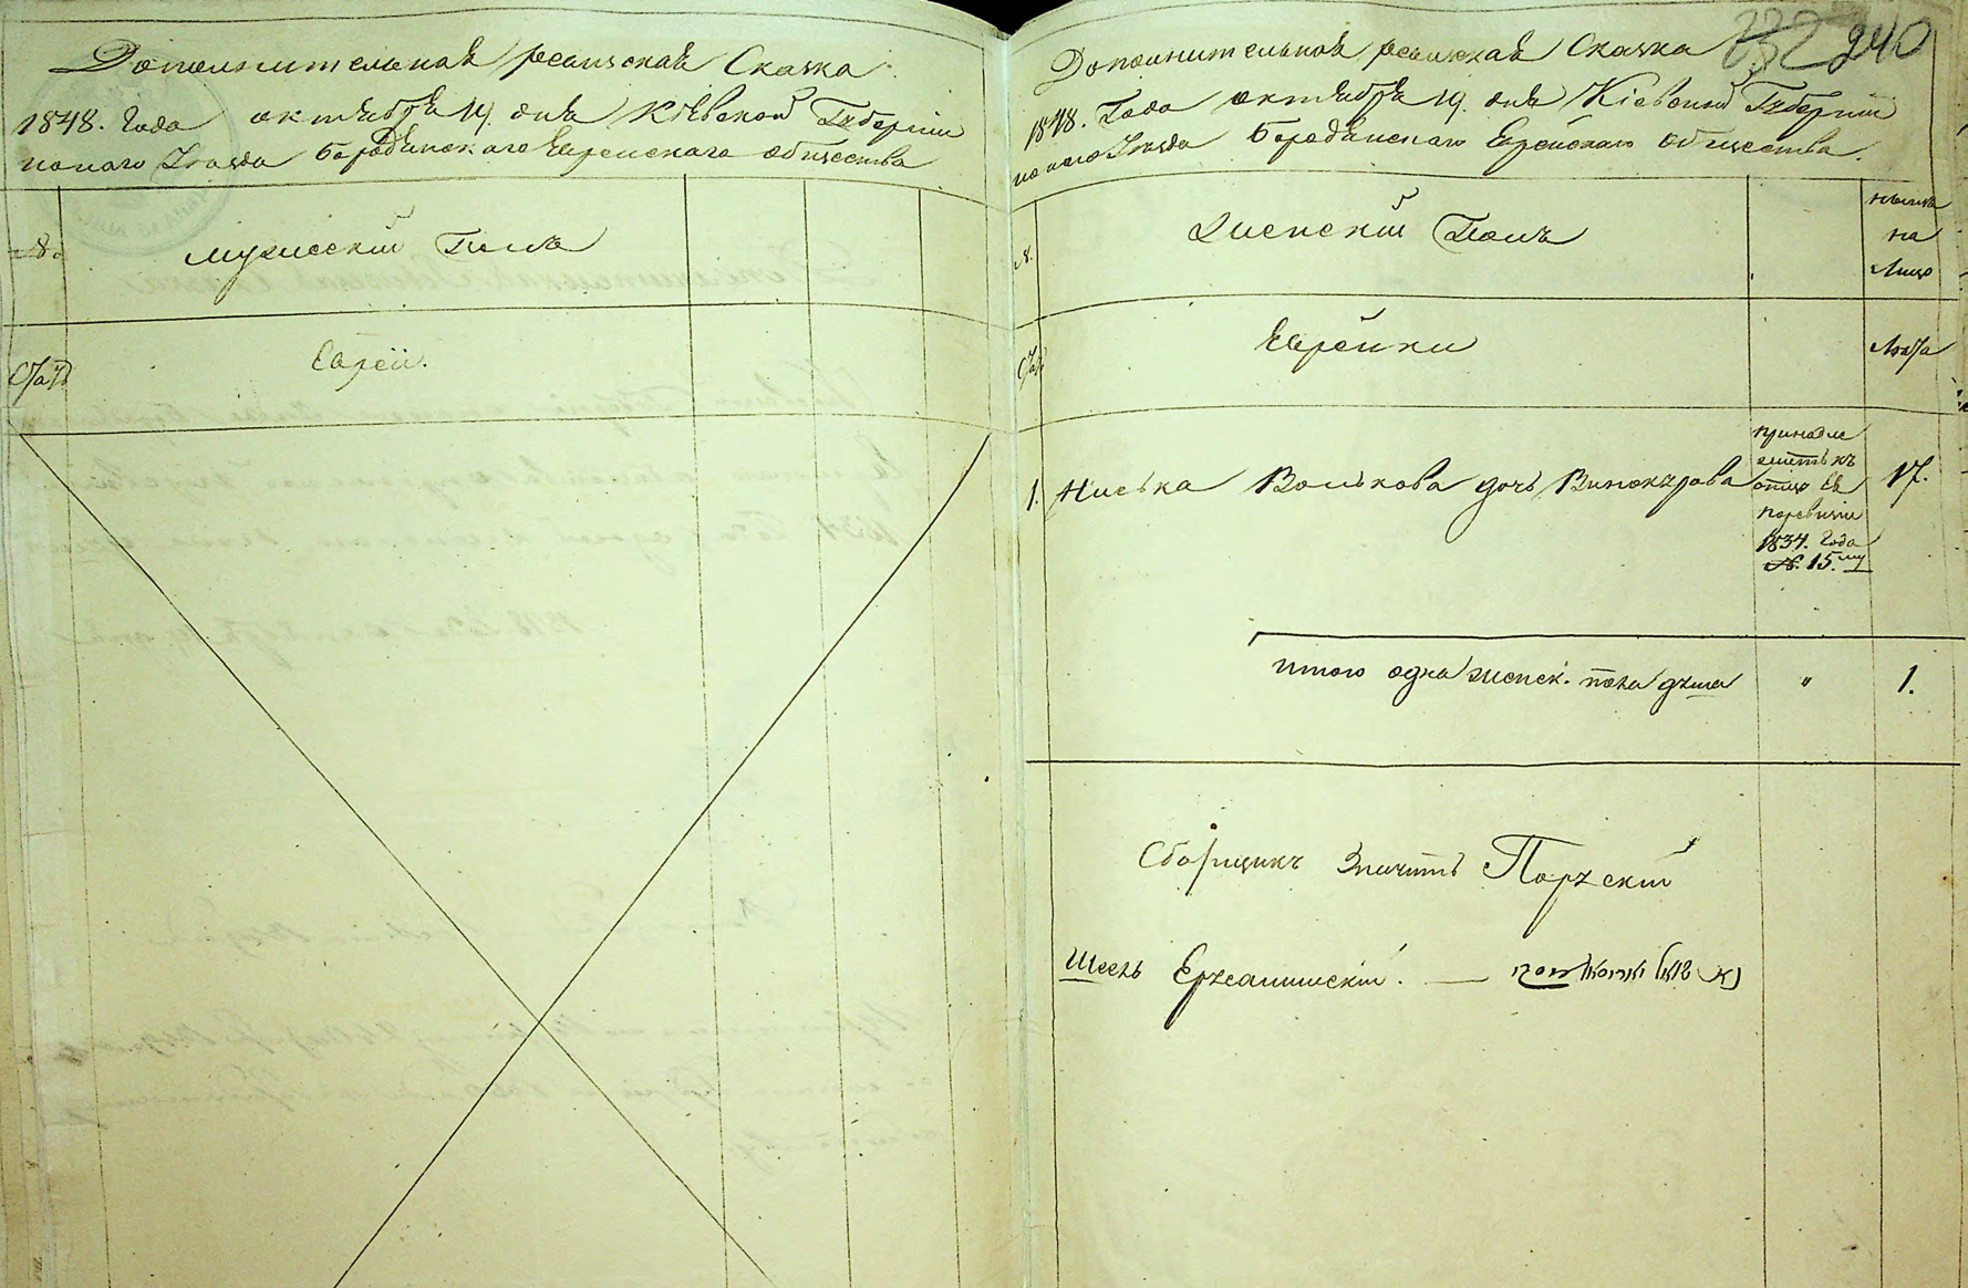 Дополнительная ревизская Сказка
1848. года октября 19. дня Кіевской Губерніи
наго Уезда Бородянского Еврейскаго общества
№.
мужескій Полъ
Евреи.
240
Дополнительная ревизская Сказка
1848. Года октября 19. дня Кіевской Губерніи
наго Уезда Бородянскаго Еврейскаго общества.
№.
Женскій Полъ
ныне
на
Лицо
Еврейки
Лета
1. Ниська Волькова дочь Винокурова
принадле
житъ къ
отцу Ея
поревизіи
1834. Года
№. 15.му
17.
итого одна женск. пола душа " 1.
Сборщикъ
Ержеанишскій. —